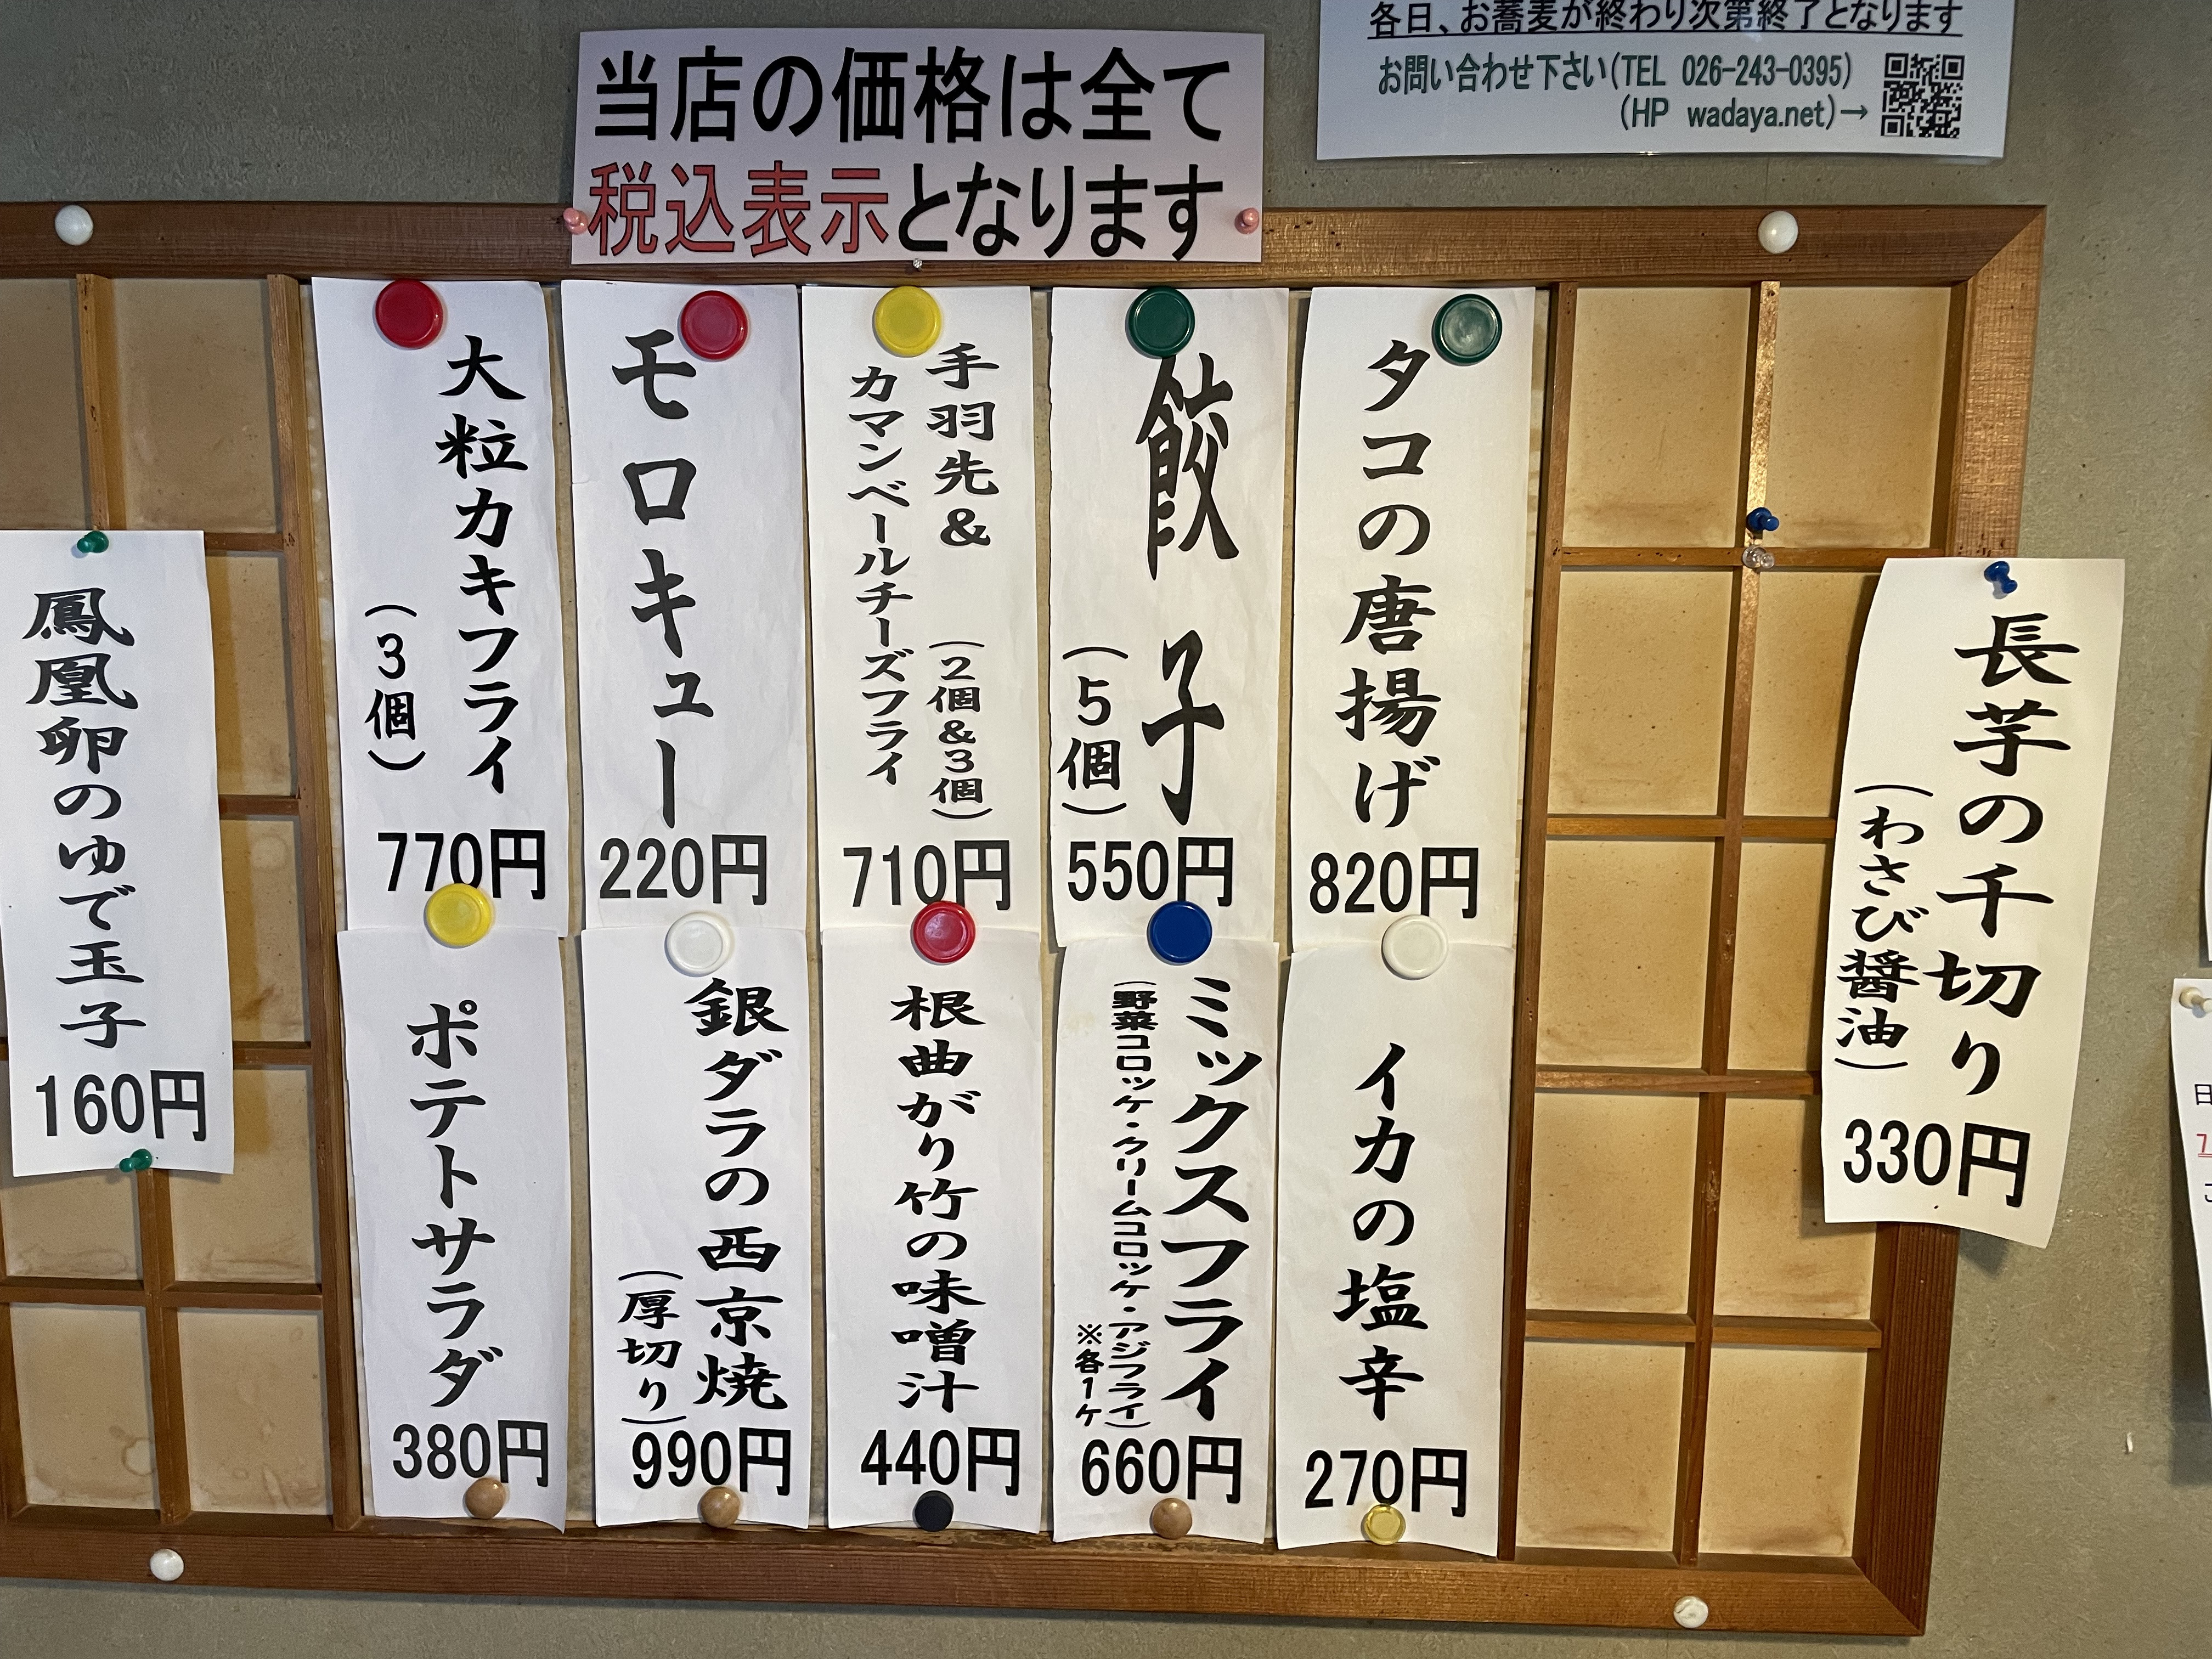 各日、お蕎麦が終わり次第終了となります
お問い合わせ下さい(TEL 026-243-0395)
(HP wadaya.net)→
当店の価格は全て
税込表示となります
長芋の千切り
(わさび醤油)
330円
タコの唐揚げ
820円
餃子
(5個)
550円
手羽先& (2個&3個)
カマンベールチーズフライ
710円
モロキュー
220円
大粒カキフライ
(3個)
770円
イカの塩辛
270円
ミックスフライ
(野菜コロッケ・クリームコロッケ・アジフライ)
※各1ケ
660円
根曲がり竹の味噌汁
440円
銀ダラの西京焼
(厚切り)
990円
ポテトサラダ
380円
鳳凰卵のゆで玉子
160円